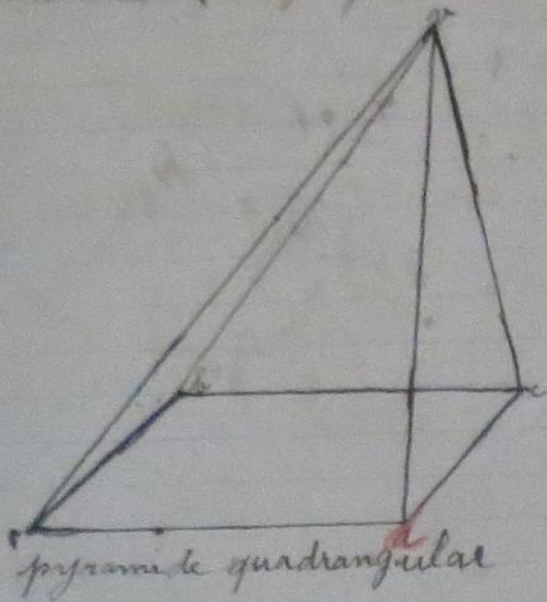 b
c
d
pyramide quadrangular